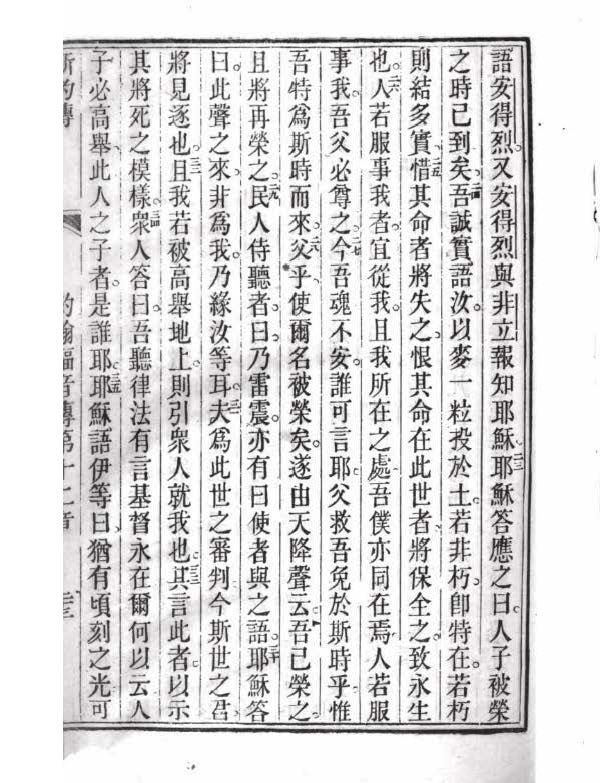 語安得烈又安得烈與非立報知耶穌二三耶穌答應之曰人子被榮
之時已到矣二四吾誠實語汝以麥一粒投於土若非朽卽特在若朽
則結多實二五惜其命者將失之恨其命在此世者將保全之致永生
也二六人若服事我者宜從我且我所在之處吾僕亦同在焉人若服
事我吾父必尊之二七今吾魂不安誰可言耶父救吾免於斯時乎惟
吾特為斯時而來二八父乎使爾名被榮矣遂由天降聲云吾已榮之
且將再榮之二九民人侍聽者曰乃雷震亦有曰使者與之語三十耶穌答
曰此聲之來非為我乃緣汝等耳三一夫為此世之審判今斯世之君
將見逐也三二且我若被高舉地上則引衆人就我也三三其言此者以示
其將死之模樣三四衆人答曰吾聽律法有言基督永在爾何以云人
子必高舉此人之子者是誰耶三五耶穌語伊等曰猶有頃刻之光可
新約傳 約翰福音傳第十二章